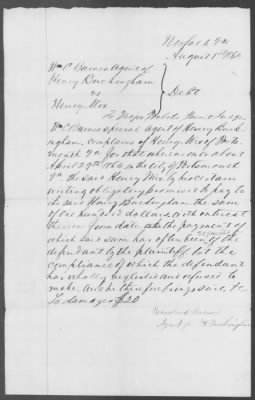 Norfolk Va
August 1st 186
Wm C Barnes Agent of
Henry Buckingham
vs
Henry Mix
Debt
To Major
Wm C Barnes special agent of Henry Buck-
ingham, complains of Henry Mix of Ports-
mouth Va for that whereas on or about
April 27th 186 in the City of Portsmouth
Va the said Henry Mix by his certain
writing obligatory promised to pay to
the said Henry Buckingham the sum
of One hundred dollars with interest
thereon from date and the payment of
which said sum has often been required of the
defendant by the plaintiff but the
compliance of which the defendant
has wholly neglected and refused to
make. And he therefore brings suit &c
To damage $20
Agent for H Buckingham